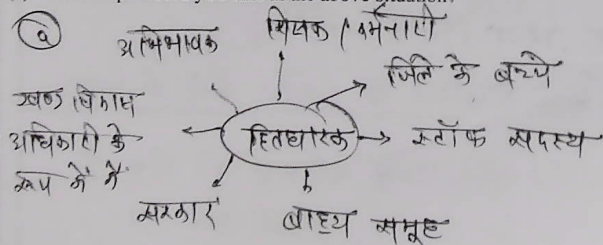 (a)
अभिभावक
शिक्षक / कर्मचारी
जिले के बच्चे
खण्ड विकास
अधिकारी के
रूप में मैं
हितधारक
स्टॉफ सदस्य
सरकार
बाह्य समूह